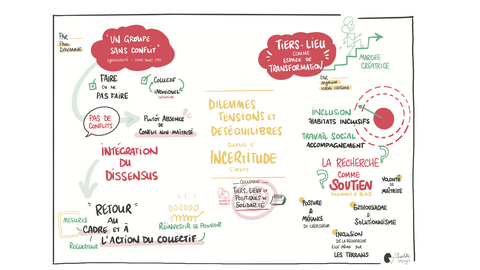 PAR
"UN GROUPE
SANS CONFLIT"
FAIRE
OU NE
PAS FAIRE
COLLECTIF
INDIVIDUEL
PAS DE
CONFLITS
PLUTÔT ABSENCE
DE
CONFLIT NON-MAÎTRISÉ
INTÉGRATION
DU
DISSENSUS
MESURES
"RETOUR"
AU
CADRE ET À
L'ACTION DU COLLECTIF
RÉGULATEUR
RÉINVESTIR LE POUVOIR
DILEMMES
TENSIONS ET
DESÉQUILIBRES
QUAND L'
INCERTITUDE
S'INVITE
COLLOQUE
TIERS-LIEUX ET
POLITIQUES DE
SOLIDARITÉ
TIERS-LIEU
COMME
ESPACE DE
TRANSFORMATION
PAR
MARCHE
CRÉATRICE
INCLUSION
HABITATS INCLUSIFS
TRAVAIL SOCIAL
ACCOMPAGNEMENT
LA RECHERCHE
COMME
SOUTIEN
VOLONTÉ
DE
MAÎTRISE
POSTURE &
MÉFIANCE
DU CHERCHEUR
ENTHOUSIASME
&
SOLUTIONNISME
INCLUSION
DE LA RECHERCHE
ELLE MÊME SUR
LES TERRAINS